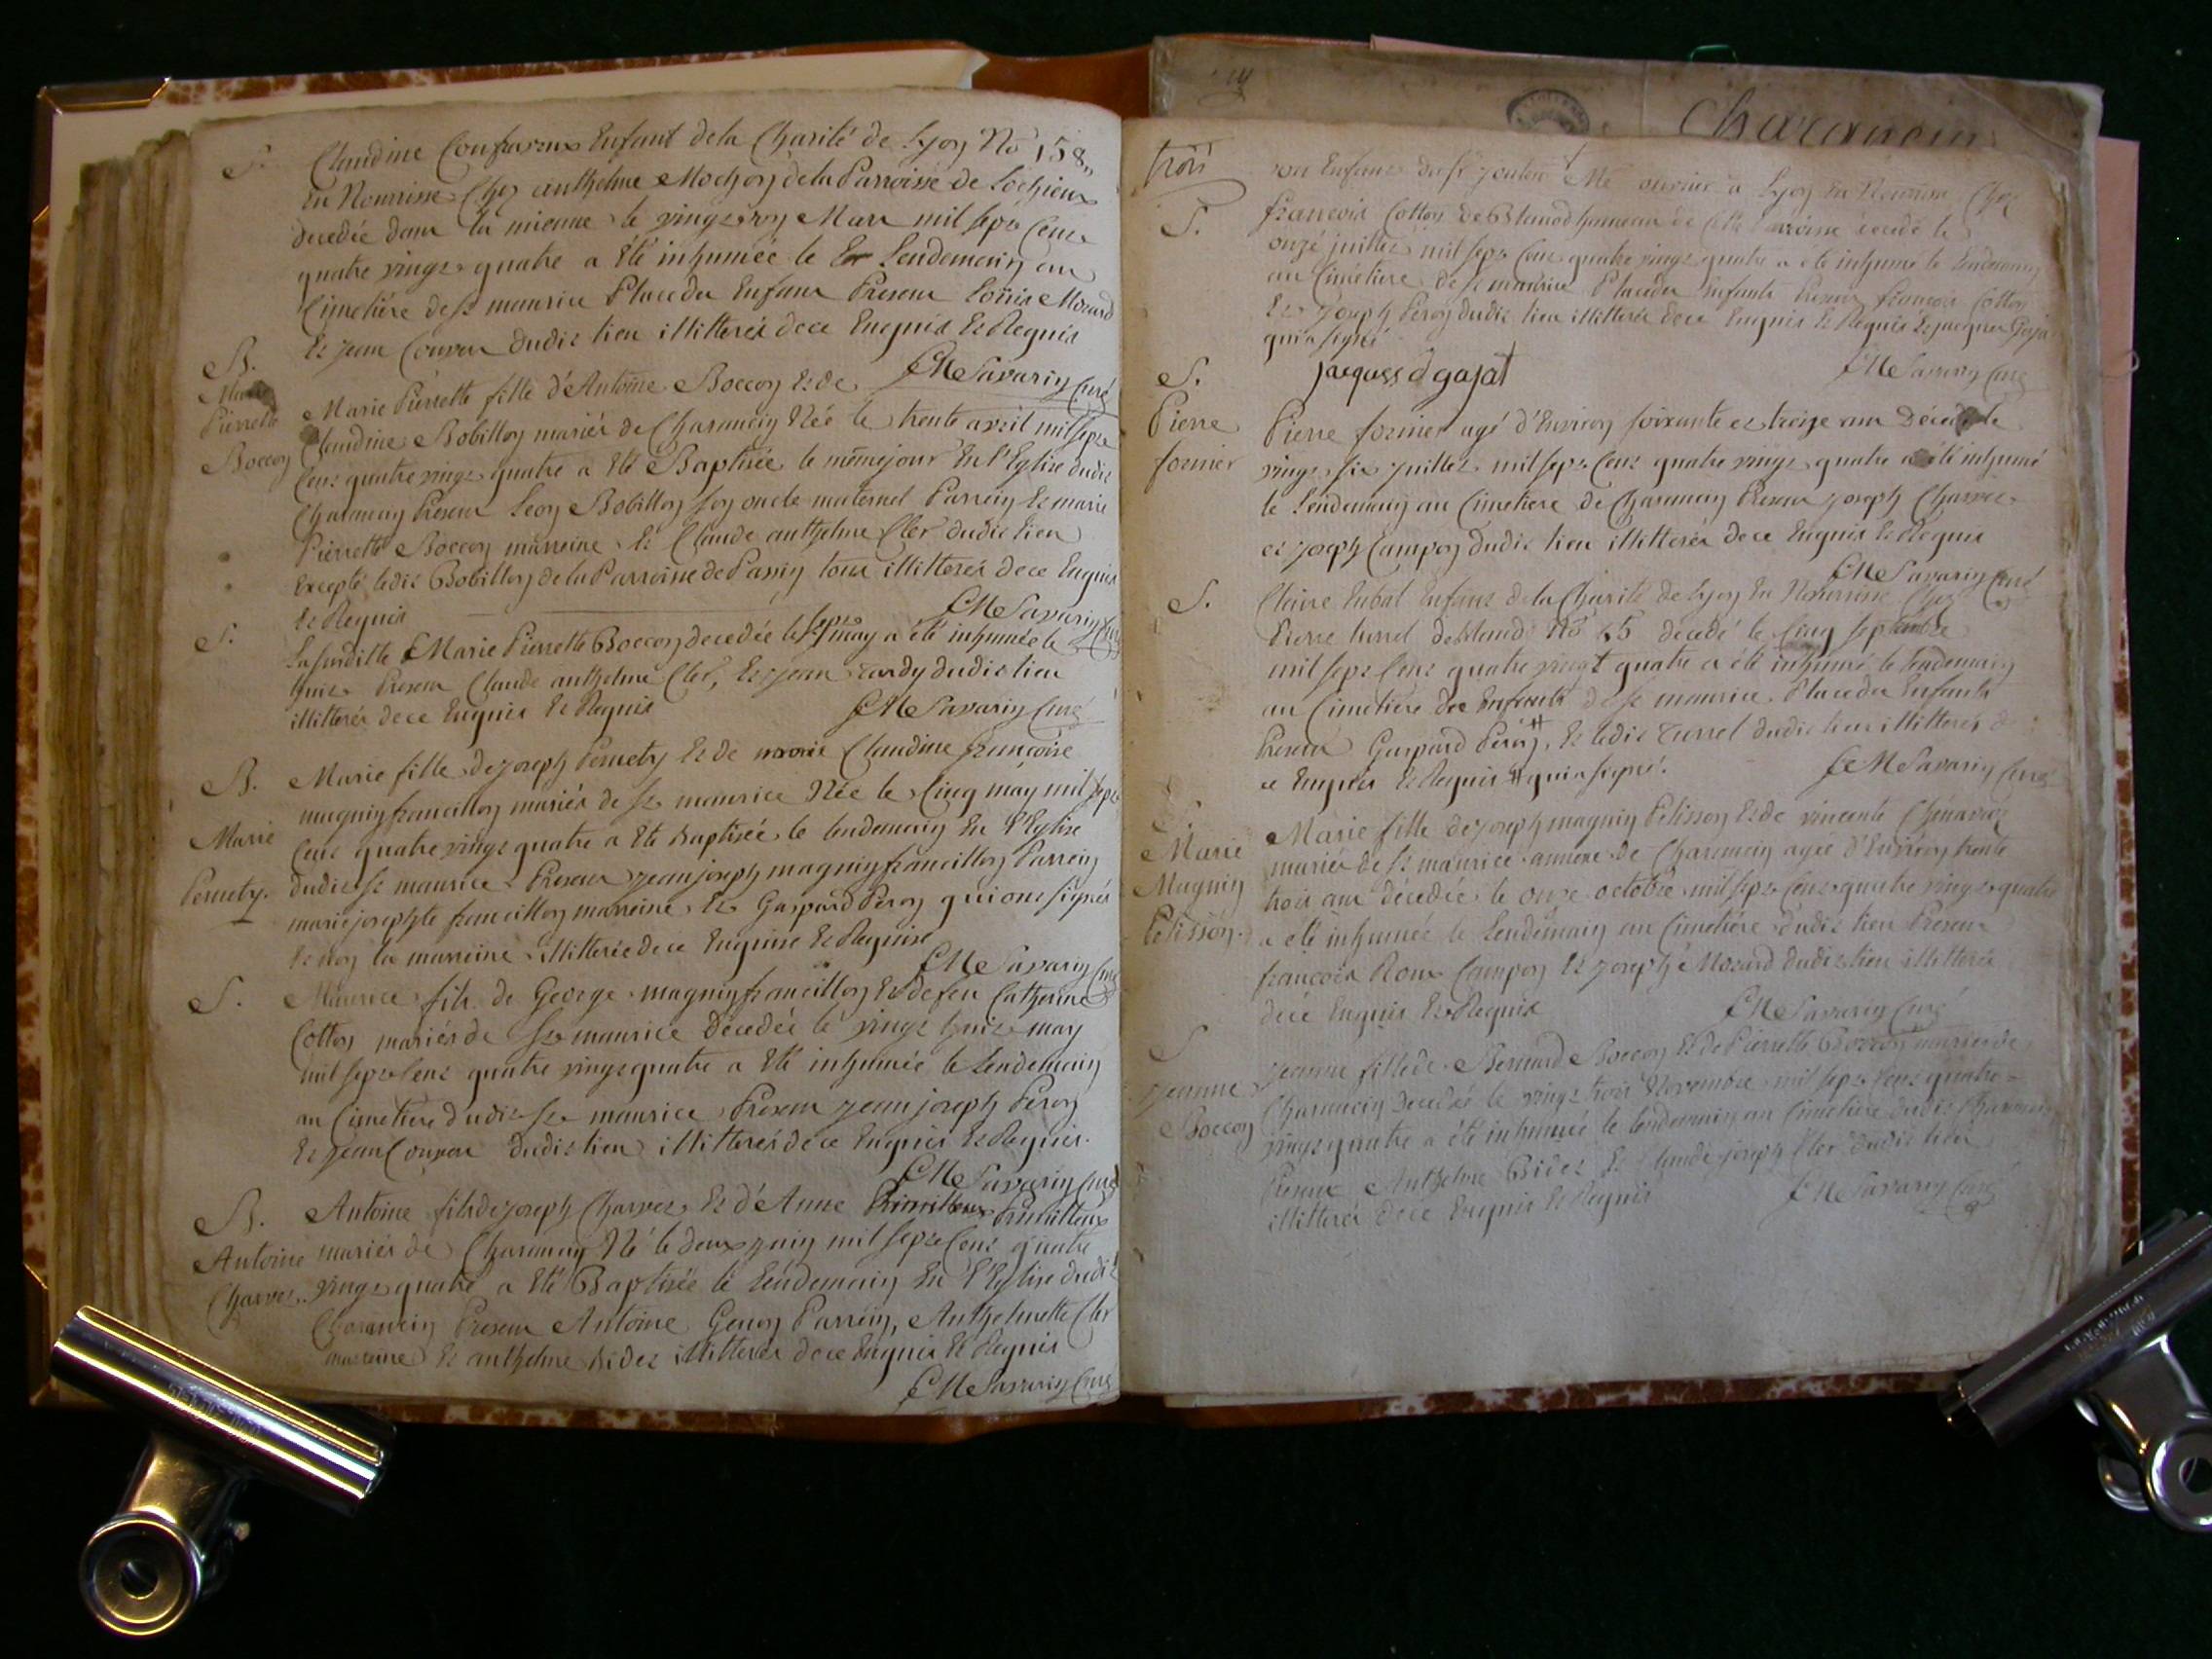 S. Claudine Confavreux Enfant de la Charité de Lyon No 158,,
En Nourrisse Chez anthelme Mochon de la Parroisse de Lochieux
decedée dans la mienne le vingt Mars mil sept Cent
quatre vingt quatre a été inhumée le Lendemain au
Cimetière de st maurice Place des Enfans Presens Mozard
Et jean Couson dudit lieu illitterés de ce Enquis Et Requis
CM Savarin Curé
B.
Marie
Pierrette
Boccon
Marie Pierrette fille d'Antoine Boccon Et de
Claudine Bobillon mariés de Charancin Née le trente avril mil sept
Cent quatre vingt quatre a été Baptisée le même jour En l'Eglise dudit
Charancin Presens Leon Bobillon son oncle maternel Parrein Et marie
Pierrette Boccon marreine Et Claude anthelme Cler dudit lieu
Excepté ledit Bobillon de la Parroisse de Passin tous illitterés de ce Enquis
Et Requis
CM Savarin Curé
S. La susditte Marie Pierrette Boccon decedée le sept may a été inhumée le
huit Presens Claude anthelme Cler, Et jean tardy dudit lieu
illitterés de ce Enquis Et Requis
CM Savarin Curé
B.
Marie
Pernety.
Marie fille de joseph Pernety Et de marie Claudine françoise
magnin francillon mariés de st maurice Née le Cinq may mil sept
Cent quatre vingt quatre a été baptisée le lendemain En l'Eglise
dudit st maurice Presens jean joseph magnin francillon Parrein
marie josephte francillon marreine Et Gaspard Peron qui ont signés
Et non la marreine illitterée de ce Enquise Et Requise
CM Savarin Curé
S. Maurice fils de George magnin francillon Et de feu Catherine
Cotton mariés de st maurice décedée le vingt huit may
mil sept Cent quatre vingt quatre a été inhumée le Lendemain
au Cimetière dudit st maurice Presens jean joseph Peron
Et jean Couson dudit lieu illitterés de ce Enquis Et Requis.
CM Savarin Curé
B.
Antoine
Charvet.
Antoine fils de joseph Charvet Et d'Anne
mariés de Charancin Né le deux juin mil sept Cent quatre
vingt quatre a été Baptisée le Lendemain En l'Eglise dudit
Charancin Presens Antoine Genon Parrein, Anthelmette Cler
marreine Et anthelme bidet illitterés de ce Enquis Et Requis
CM Savarin Curé
Charancin
trois
S.
Enfant ouvrier a Lyon En Nourrisse Chez
françois Cotton de hameau de Cette Parroisse décedé le
onze juillet mil sept Cent quatre vingt quatre a été inhumé le Lendemain
au Cimetiere de st maurice Place des Enfants Presens françois Cotton
Et joseph Peron dudit lieu illitterés de ce Enquis Et Requis Et jacques
qui a signé
jacques d gajat
CM Savarin Curé
S.
Pierre
fornier
Pierre fornier agé d'Environ soixante et treize ans Décedé le
vingt six juillet mil sept Cent quatre vingt quatre a été inhumé
le Lendemain au Cimetiere de Charancin Presens joseph Charvet
et joseph Campon dudit lieu illitterés de ce Enquis Et Requis
CM Savarin Curé
S. Claire Enfant de la Charité de Lyon En Nourrisse Chez
Pierre turrel No 65 decedé le Cinq septembre
mil sept Cent quatre vingt quatre a été inhumé le lendemain
au Cimetiere de st maurice Place des Enfants
Presens Gaspard Peron #, Et ledit turrel dudit lieu illitterés de
ce Enquis Et Requis # qui a signé.
CM Savarin Curé
S.
Marie
Magnin
Pelisson.
Marie fille de joseph magnin Pelisson Et de vincente
mariés de st maurice annexe de Charancin agée d'Environ trente
trois ans décedée le onze octobre mil sept Cent quatre vingt quatre
a été inhumée le Lendemain au Cimetière dudit lieu Presens
françois Roux Campon Et joseph Mozard dudit lieu illitterés
de ce Enquis Et Requis
CM Savarin Curé
S
jeanne
Boccon
jeanne fille de Bernard Boccon Et de Pierrette Boccon mariés de
Charancin Decedée le vingt trois Novembre mil sept Cent quatre
vingt quatre a été inhumée le lendemain au Cimetière dudit Charancin
Presens Anthelme Bidet Et Claude joseph Cler dudit lieu
illitterés de ce Enquis Et Requis
CM Savarin Curé